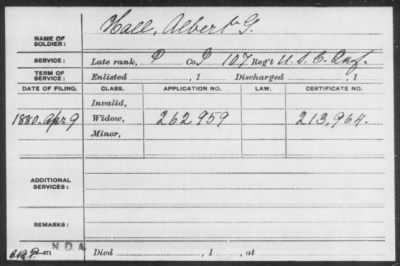 NAME OF SOLDIER: Hall, Albert G.
SERVICE: Late rank, P Co. I 107 Reg't U.S.C. Inf.
TERM OF SERVICE: Enlisted , 1 Discharged , 1
DATE OF FILING. CLASS. APPLICATION NO. LAW. CERTIFICATE NO.
Invalid,
1880. Apr 9 Widow, 262959 213,964.
Minor,
ADDITIONAL SERVICES:
REMARKS:
N.D.A.
Died , 1 , at